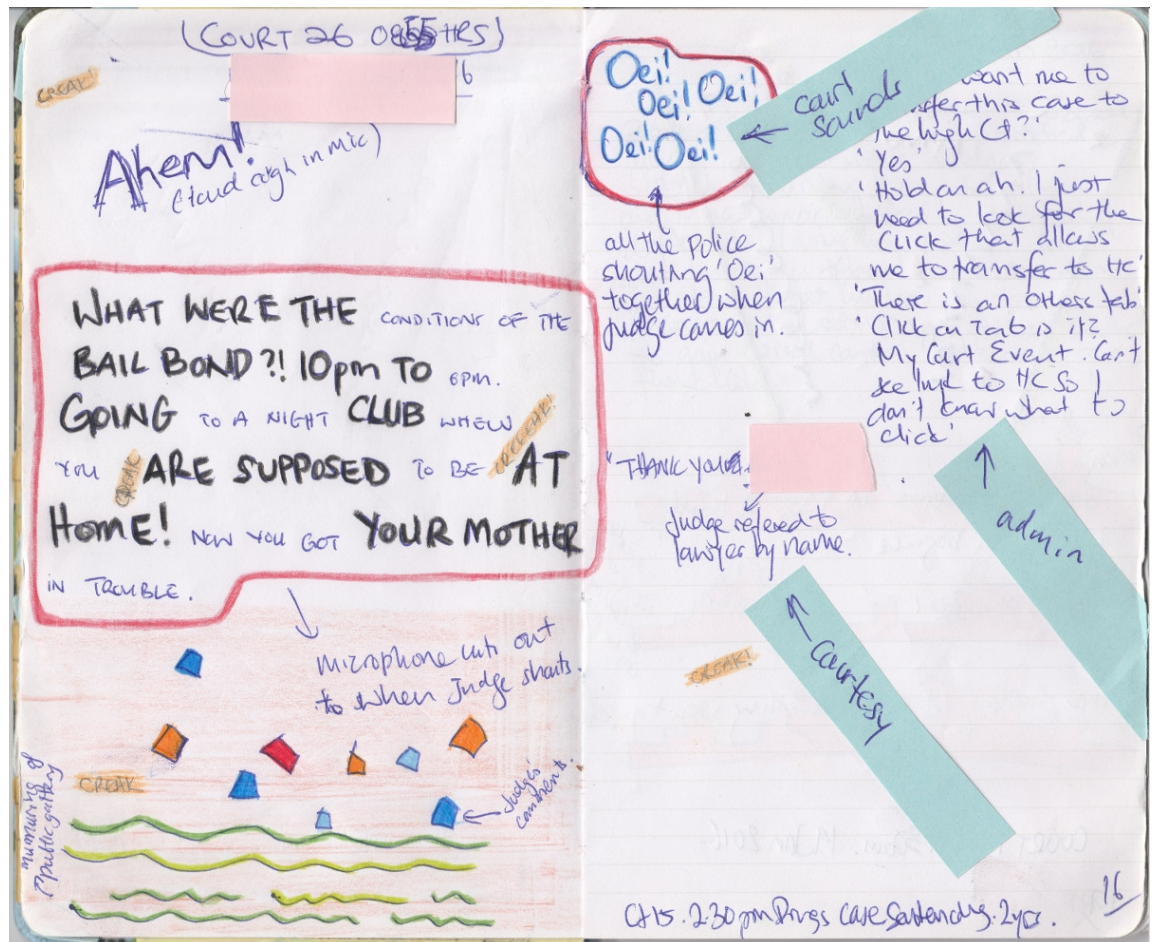 (COURT 26 0855HRS)
CREAK!
6
Ahem!
(loud cough in mic)
WHAT WERE THE CONDITIONS OF THE
BAIL BOND?! 10pm TO 6pm.
GOING TO A NIGHT CLUB WHEN
YOU CREAK ARE SUPPOSED TO BE CREEEAK! AT
HOME! NOW YOU GOT YOUR MOTHER
IN TROUBLE.
Microphone cuts out
to when Judge shouts.
CREAK
Judge's
comments.
murmuring of
public gallery
Oei!
Oei! Oei!
Oei! Oei!
court
sounds
all the police
shouting 'Oei'
together when
judge comes in.
want me to
sfer this case to
the high Ct?'
'Yes'
'Hold on ah. I just
need to look for the
click that allows
me to transfer to HC'
'There is an others tab'
'Click on Tab is it?
My Court Event. Can't
see link to HC so I
don't know what to
click'
"THANK YOU
Judge refered to
lawyer by name.
admin
CREAK!
courtesy
Ct 15. 2.30pm Drugs case Sentencing. 2yrs.
16